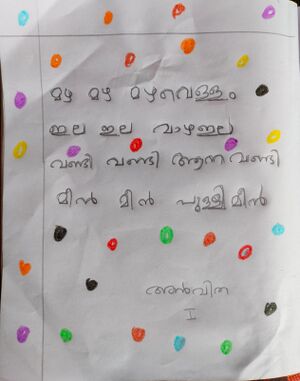 മഴ മഴ മഴവെള്ളം
ഇല ഇല വാഴഇല
വണ്ടി വണ്ടി ആന വണ്ടി
മീൻ മീൻ പുള്ളിമീൻ
അൻവിത
I